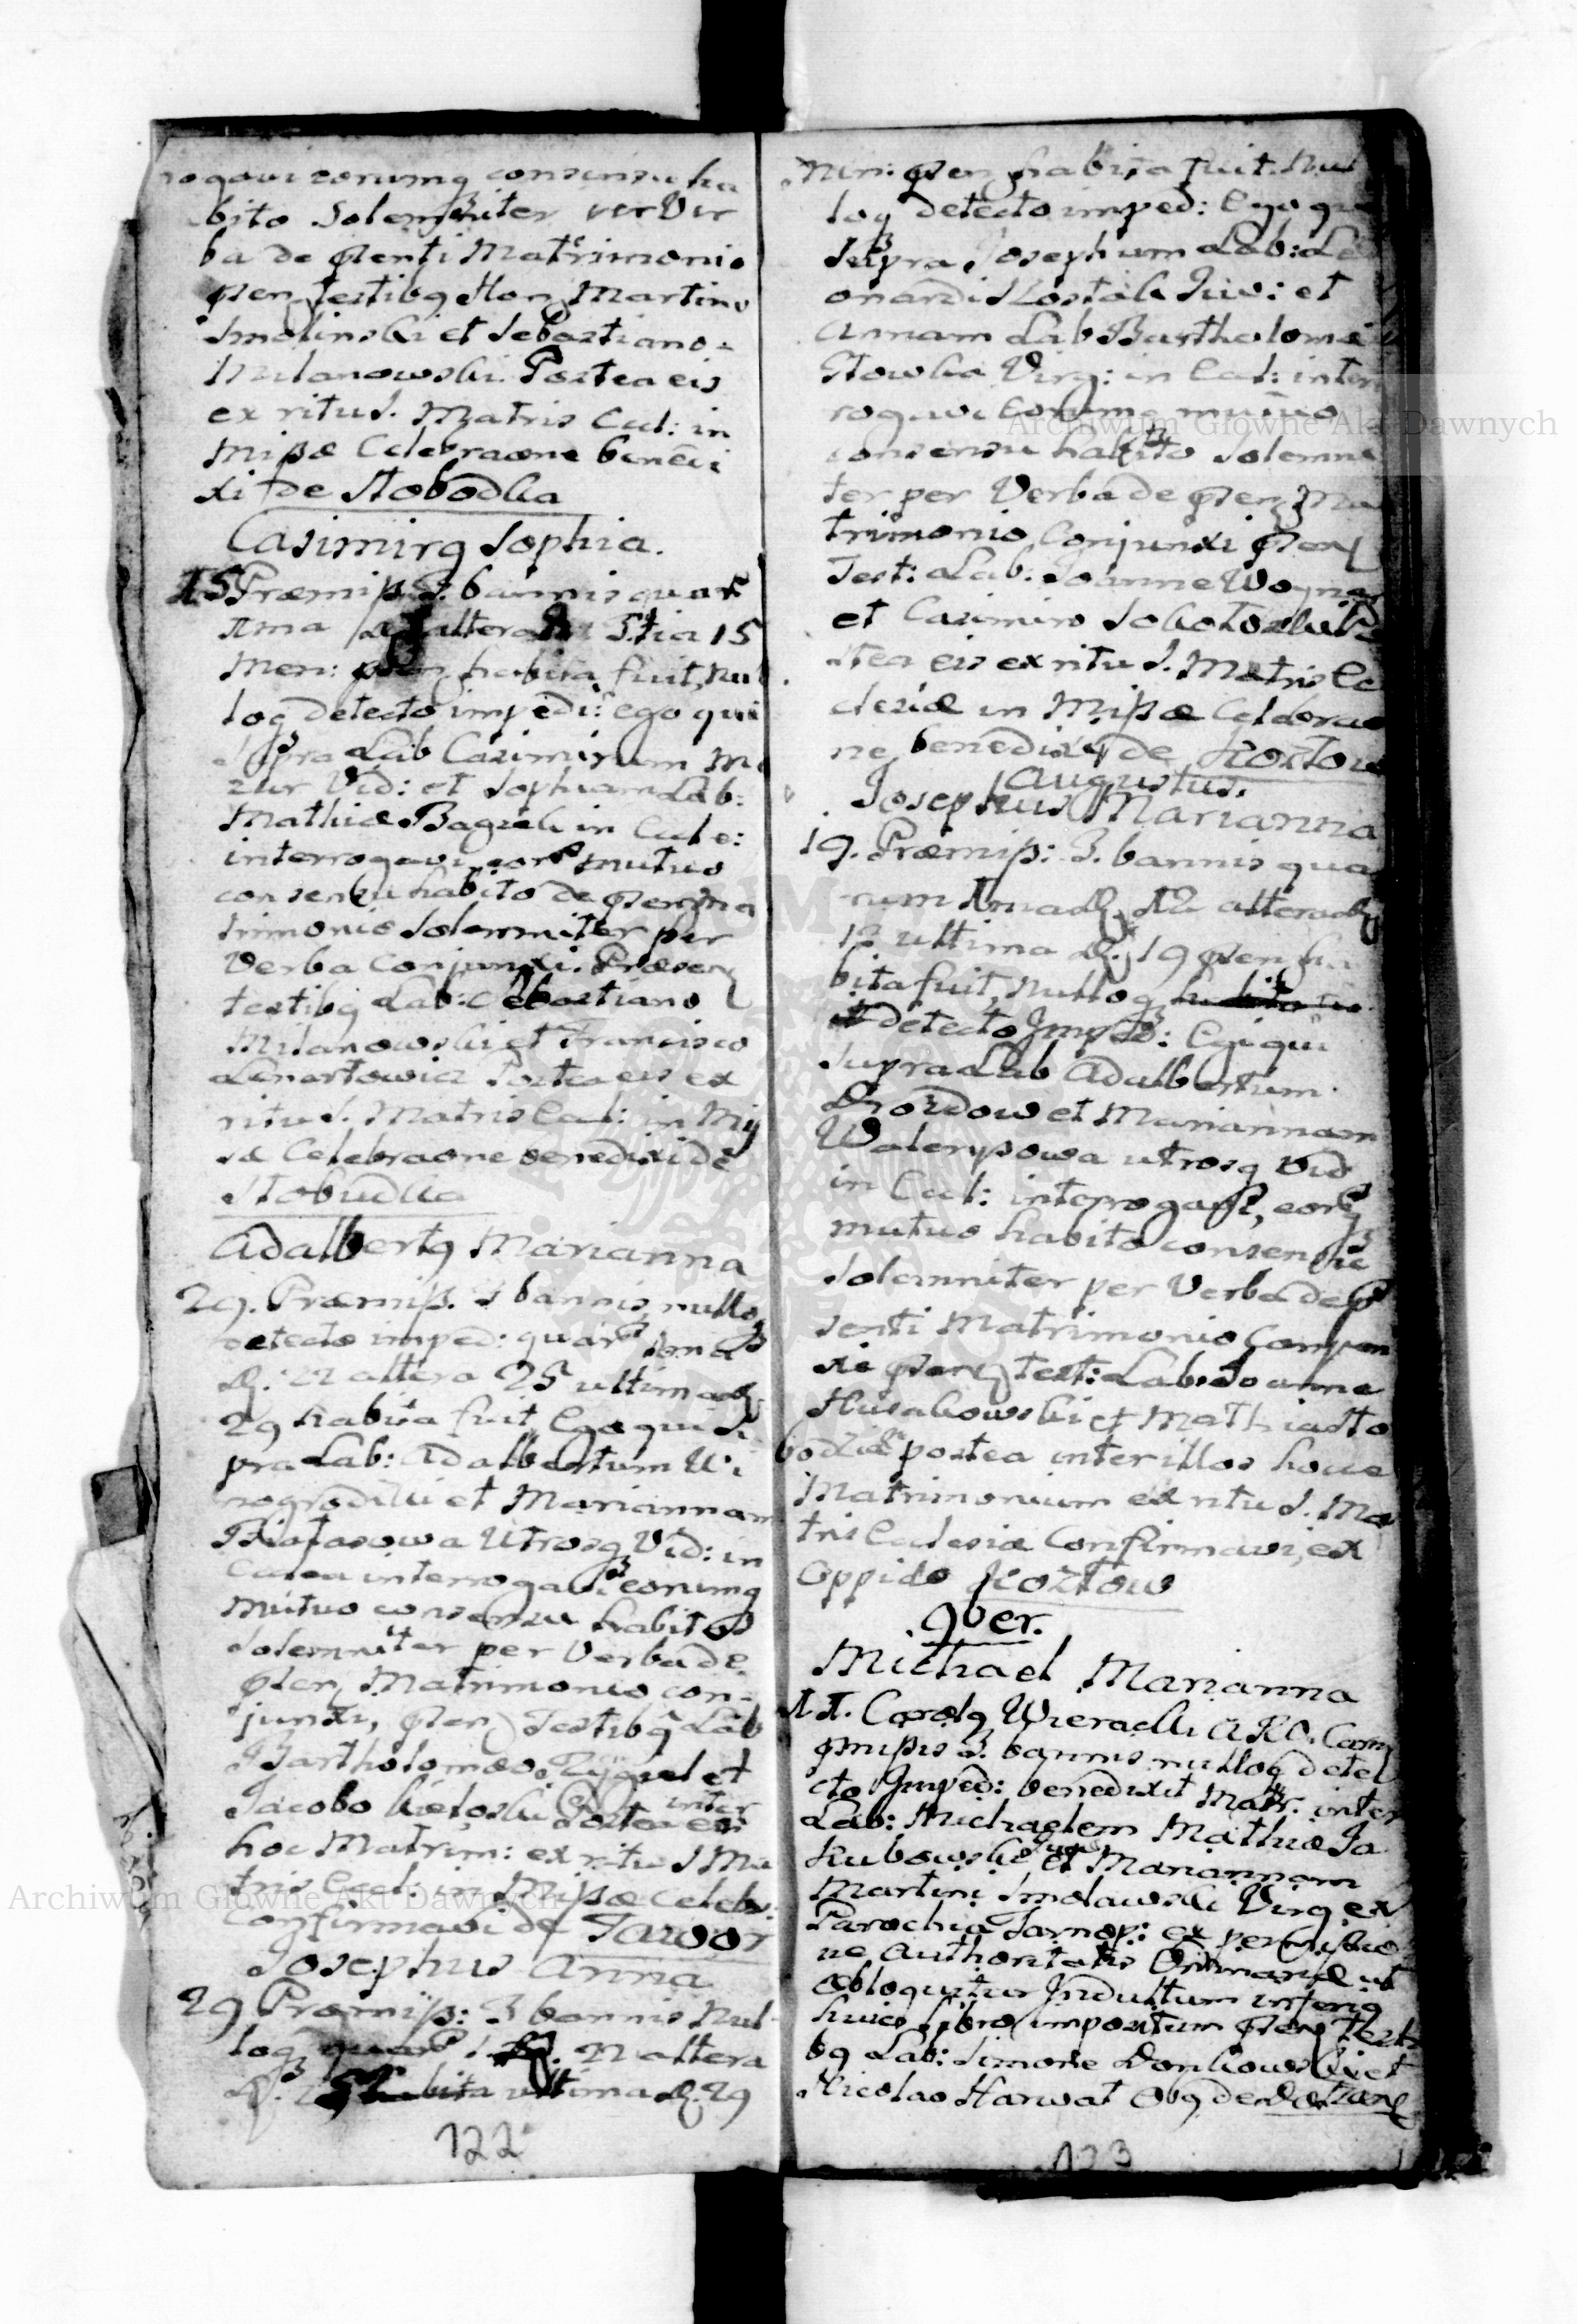 rogavi eorumq consensu ha
bito Solemniter per Ver
ba de pñenti Matrimonio
pñen testibq Hon Martino
Smolinski et Sebastiano
Milanowski. Postea eis
ex ritu S. Matris Eccl: in
Missæ Celebraone benedi
xi de Stobodka
Casimirq Sophia.
15 Præmiss. 3. bannis quar
ima altera 3tia 15
Men: pñen habita fuit, nul
loq detecto imped: ego qui
Supra Lab Casimirum Ma
zur Vid: et Sophiam Lab:
Mathiæ Bagrela in Eccle:
interrogavi, eorq mutuo
consensu habito de pñen Ma
trimonio Solemniter per
Verba Conjunxi. Præsen
testibq Lab: Sebastiano
Milanowski et Francisco
Lenartowicz Postea eis ex
ritu S. Matris Eccl: in Mis
sæ Celebraone benedixi de
Stobudka
Adalbertq Marianna
29. Præmiss. 3 bannis nulloq
detecto imped: quar ima
D. 22 altera 25 ultima D.
29 habita fuit, Ego qui Su
pra Lab: Adalbertum Wi
nogrodzki et Mariannam
utrosq Vid: in
Eccla interrogavi eorumq
mutuo consensu habito
Solemniter per Verba de
pñen Matrimonio con-
junxi, pñen Testibq Lab
Bartholomæo et
Jacobo Postea inter eos
hoc Matrim: ex ritu S Ma
tris Eccl. in Missæ Celebr:
confirmavi de Jawor
Josephus Anna
29 Præmiss: 3 bannis Nul
loq quar 1 D. 22 altera
D. 25 habita ultima D. 29
122
Men: pñen habita fuit. Nul
loq detecto imped: Ego qui
Supra Josephum Lab: Le
onardi Kostak Juv: et
Annam Lab Bartholomæi
Virg: in Eccl: inter
rogavi Eorumq mutuo
consensu habito Solemni
ter per Verba de pñen Ma
trimonio Conjunxi pñen
Test: Lab: Joanne Woynar
et Casimiro Po
stea eis ex ritu S. Matris Ec
clesiæ in Missæ Celebrao
ne benedixi de Kozlow
Augustus.
Josephus Marianna
19. Præmiss: 3. bannis qua
rum Ima D. 12 altera D
15 ultima D. 19 pñen ha
bita fuit, Nulloq
detecto Imped: Ego qui
Supra Lab Adalbertum
Drozdow et Mariannam
Walenpowa utrosq Vid
in Eccl: interrogavi, eorq
mutuo habito consensu
Solemniter per Verba de p
senti Matrimonio Conjun
xi pñen Test: Lab: Joanne
Husakowski et Mathia Sto
bodzian postea inter illos hocce
Matrimonium ex ritu S. Ma
tris Ecclesiæ Confirmavi, ex
Oppido Kozlow
9ber.
Michael Marianna
11. Carolq Wieracki
pmissis 3. bannis nulloq dete
cto Imped: benedixit Matr. inter
Lab: Michaelem Mathiæ Ja
kubowski Juv et Mariannam
Martini Smolawski Virg ex
Parochia Tarnop: ex permissio
ne Authoritatis Ordinariæ ut
obloquitur Indultum inferiq
huice libro impositum pñen Testi
bq Lab: Simone Donkowski et
Nicolao Harwat
123
Archiwum Głowne Akt Dawnych
Archiwum Głowne Akt Dawnych